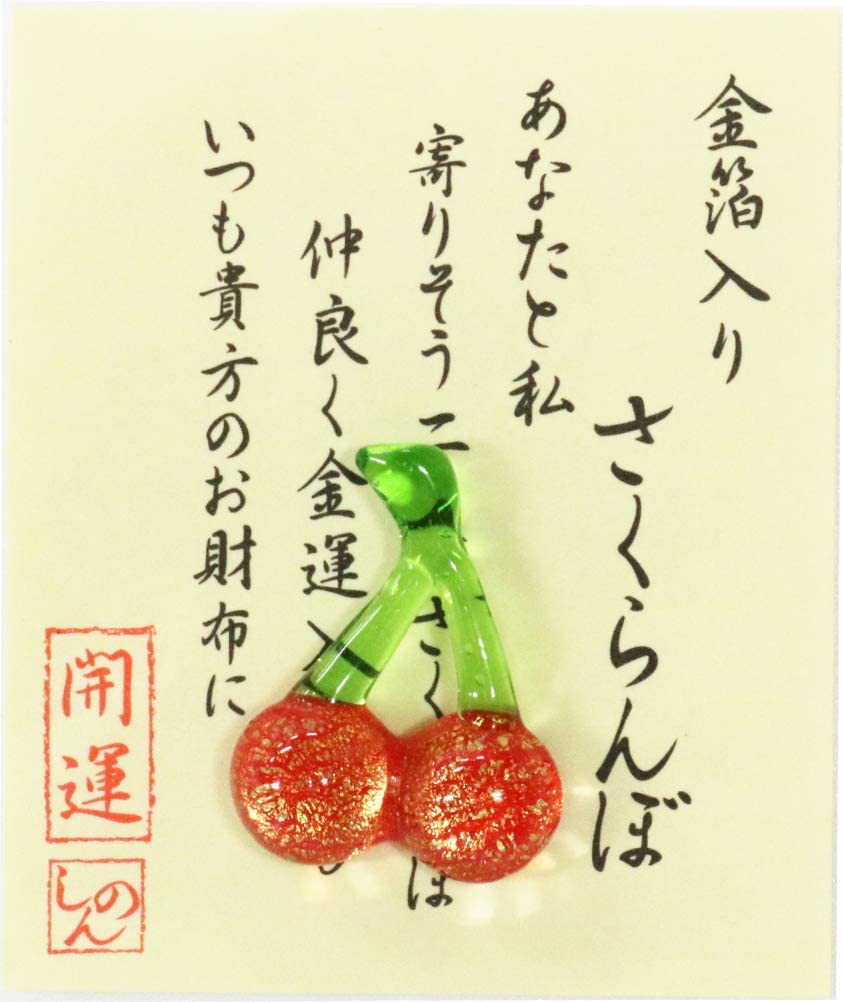 金箔入り
さくらんぼ
あなたと私
寄りそう二 さく ぼ
仲良く金運
いつも貴方のお財布に
開運
しのん